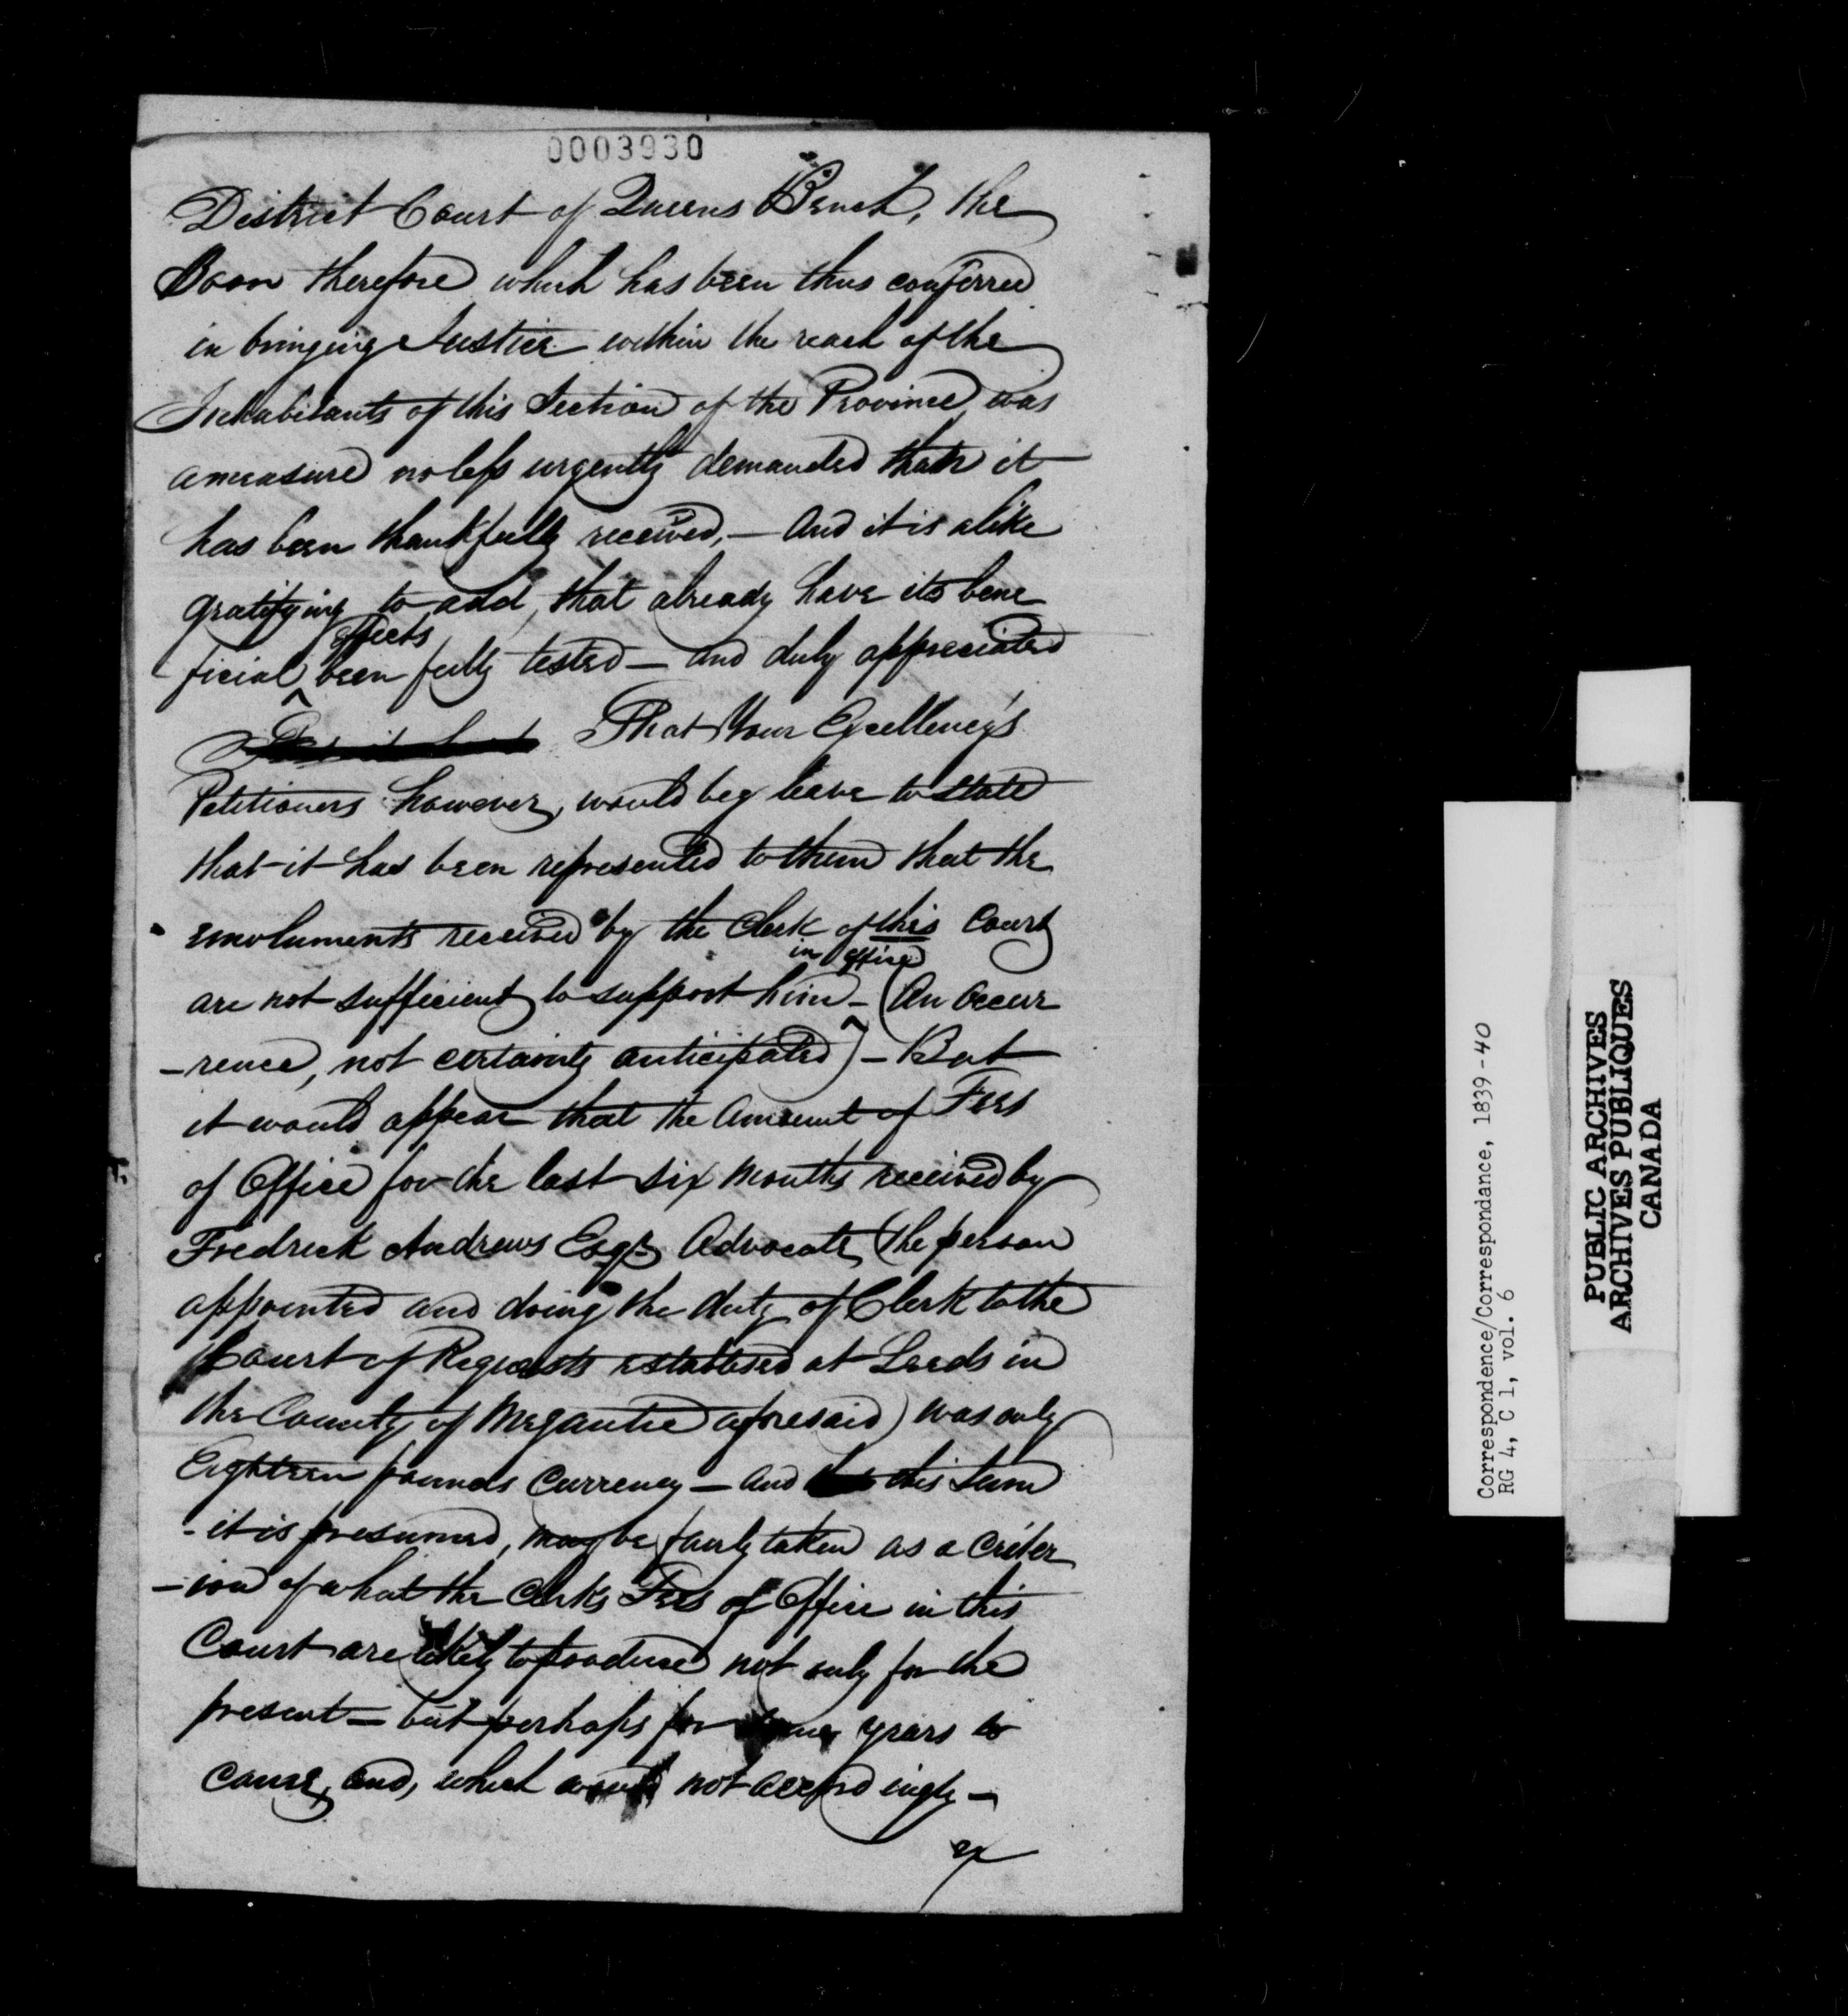 0003930
District Court of Queens Bench, the
Boon therefore which has been thus conferred
in bringing Justice within the reach of the
Inhabitants of this Section of the Province, was
a measure no less urgently demanded than it
has been thankfully received, — And it is alike
gratifying to add, that already have its bene
effects
ficial been fully tested — and duly appreciated
That Your Excellency's
Petitioners however, would beg leave to state
that it has been represented to them that the
emoluments received by the Clerk of this Court
in office
are not sufficient to support him — (An occur
-rence, not certainly anticipated) — But
it would appear that the Amount of Fees
of Office for the last six months received by
Fredrick Andrews Esqr Advocate (the person
appointed and doing the duty of Clerk to the
Court of Requests establised at Leeds in
the County of Megantic aforesaid) was only
Eighteen pounds Currency — and this sum
- it is presumed, may be fairly taken as a criter
-ion of what the Clerks Fees of Office in this
Court are likely to produce not only for the
present — but perhaps for some years to
come, and, which would not accordingly —
Correspondence/Correspondance, 1839-40
RG 4, C 1, vol. 6
PUBLIC ARCHIVES
ARCHIVES PUBLIQUES
CANADA